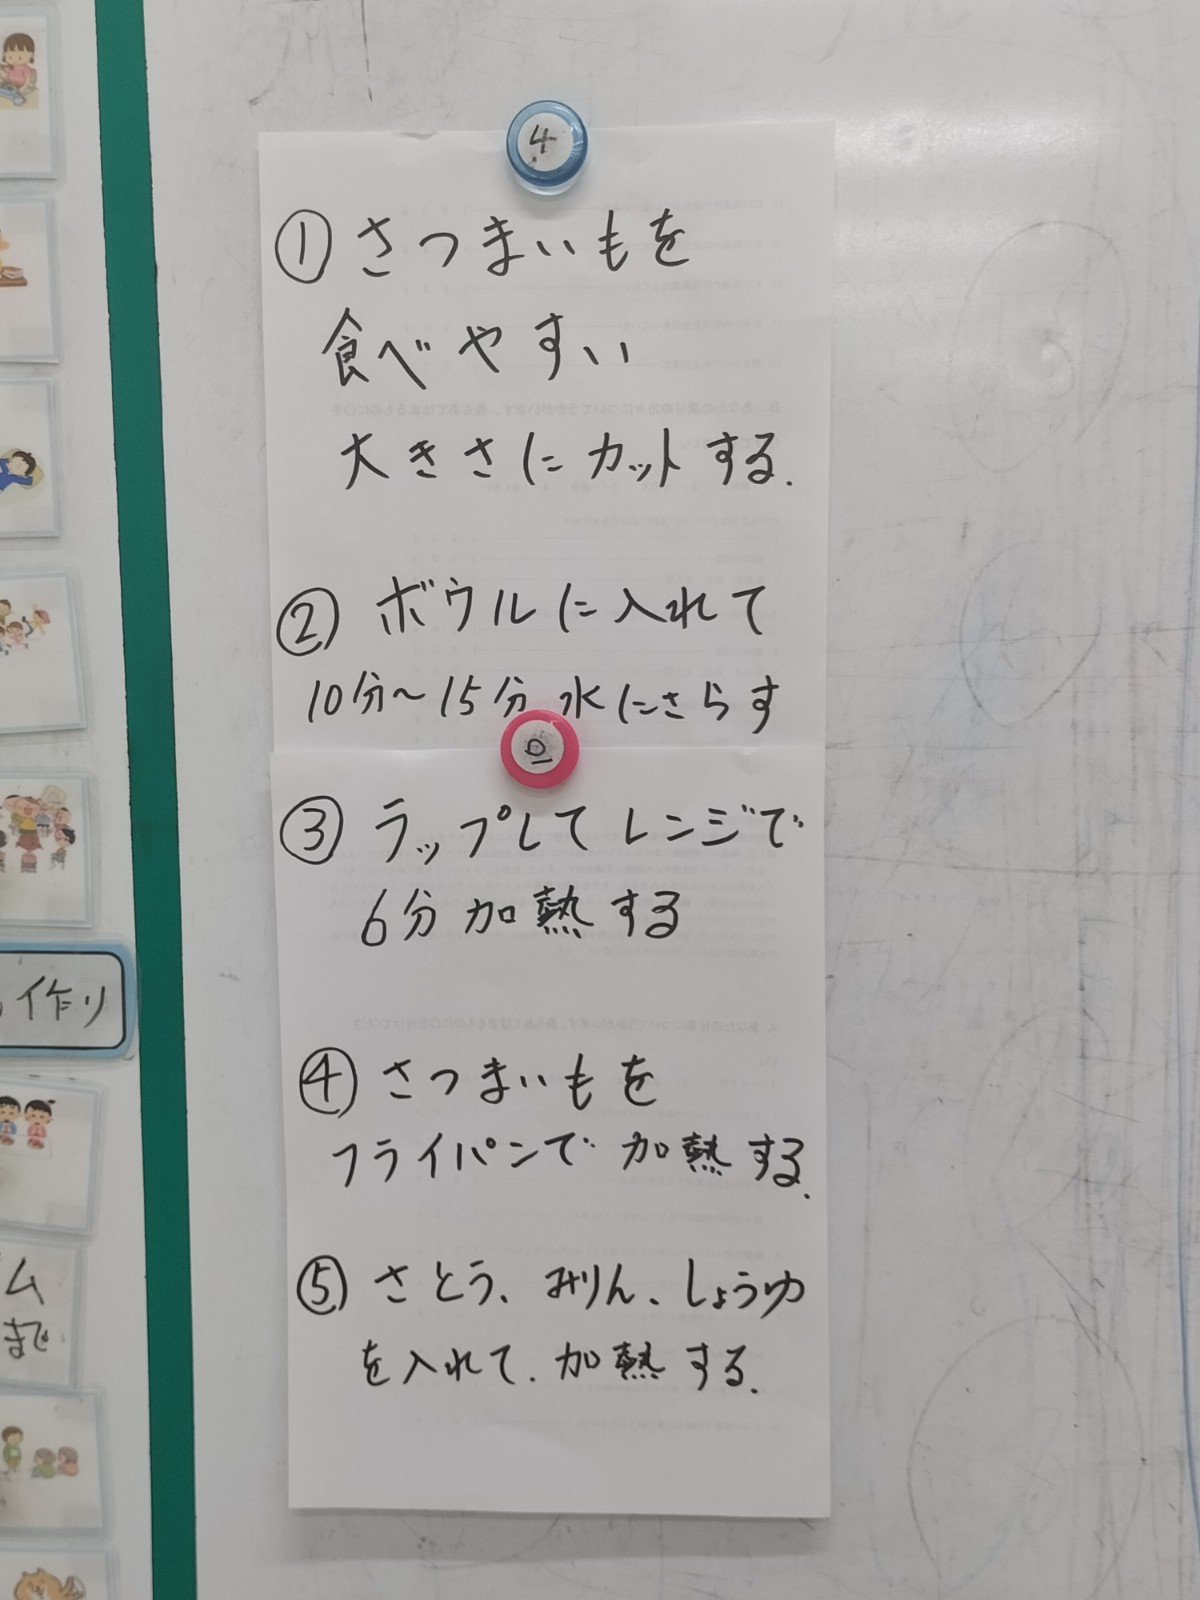 4
①さつまいもを
食べやすい
大きさにカットする.
②ボウルに入れて
10分〜15分 水にさらす
0
③ラップしてレンジで
6分加熱する
④さつまいもを
フライパンで 加熱する.
⑤さとう、みりん、しょうゆ
を入れて. 加熱する.
作り
ム
まで